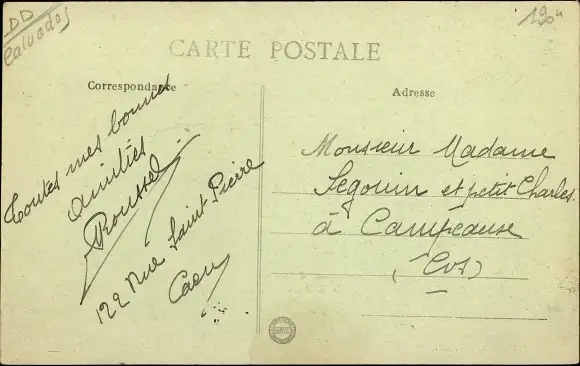 DD
Calvados
190u
CARTE POSTALE
Correspondance
Adresse
Toutes mes bonnes
amitiés
Roussel
122 Rue Saint Pierre
Caen
Monsieur Madame
Segouin et petit Charles
à Campeause
(Cvs)